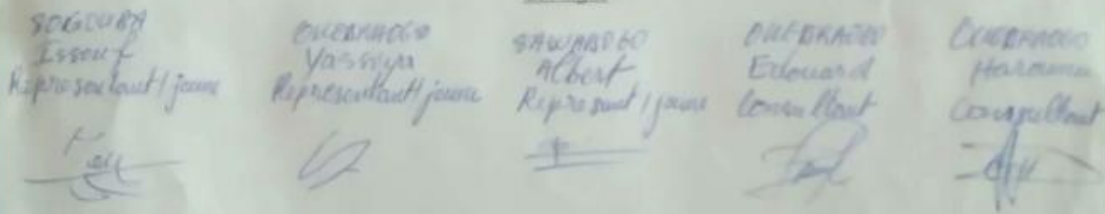 SOGOUBA
Issouf
Représentant/jeune
OUEDRAOGO
Yassiya
Représentant/jeune
SAWADOGO
Albert
Represant/jeune
OUEDRAOGO
Edouard
Consultant
OUEDRAOGO
Harouna
Consultant